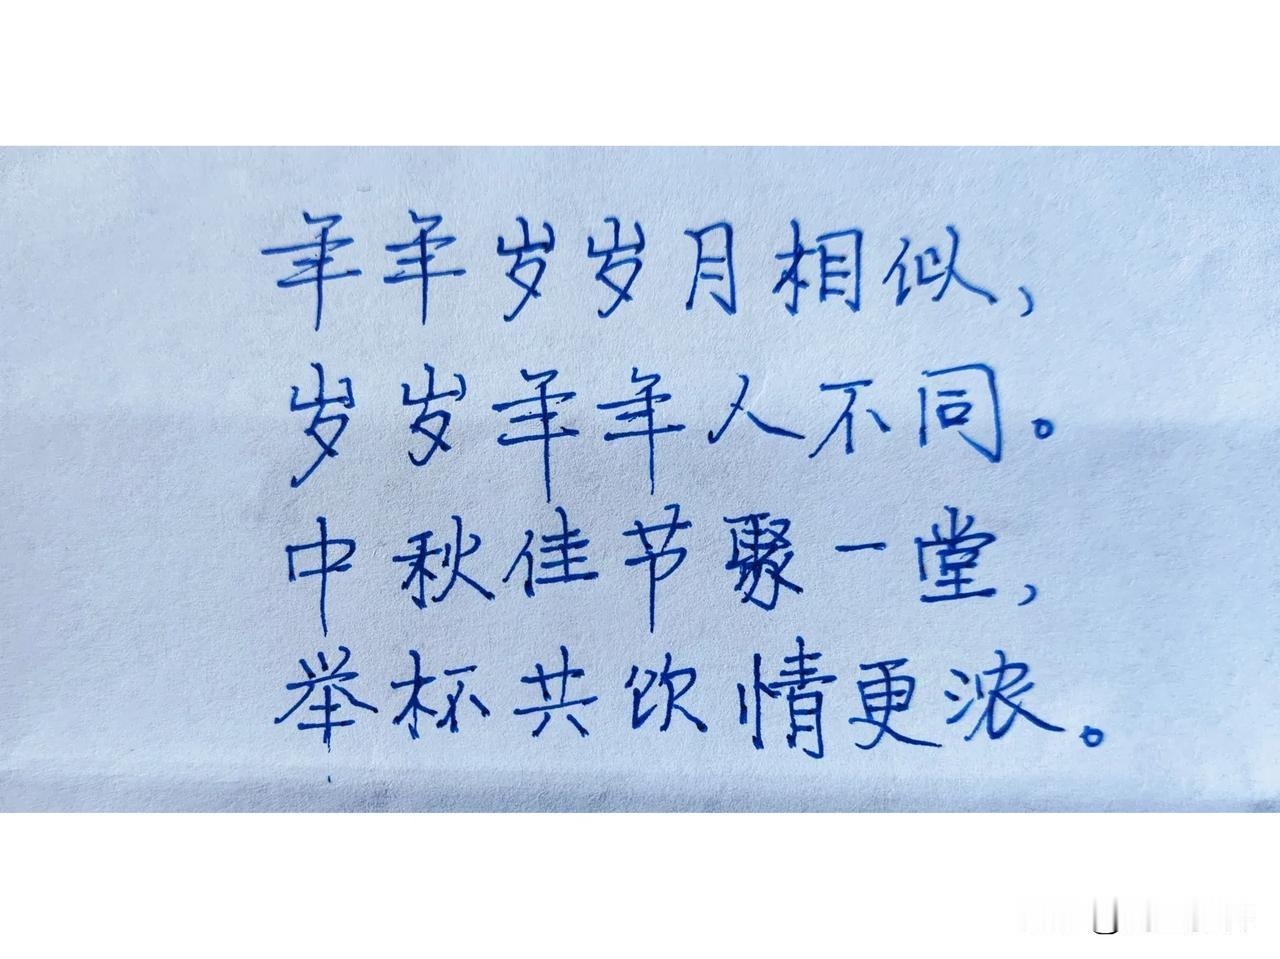 年年岁岁月相似，
岁岁年年人不同。
中秋佳节聚一堂，
举杯共饮情更浓。